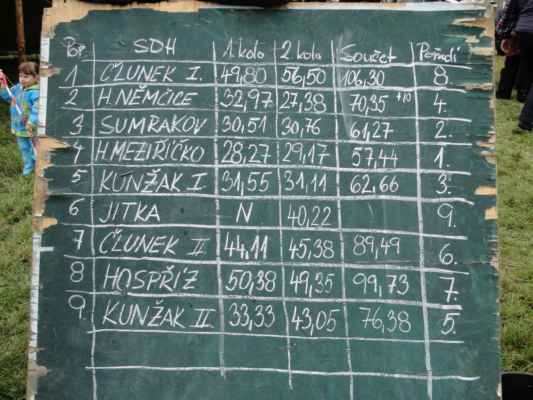 Poř. SDH 1.kolo 2.kolo Součet Pořadí
1 ČLUNEK I. 49,80 56,50 106,30 8.
2 H.NĚMČICE 32,97 27,38 70,35 +10 4.
3 SUMRAKOV 30,51 30,76 61,27 2.
4 H.MEZIŘÍČKO 28,27 29,17 57,44 1.
5 KUNŽAK I. 31,55 31,11 62,66 3.
6 JITKA N 40,22 9.
7 ČLUNEK II 44,11 45,38 89,49 6.
8 HOSPŘÍZ 50,38 49,35 99,73 7.
9. KUNŽAK II. 33,33 43,05 76,38 5.